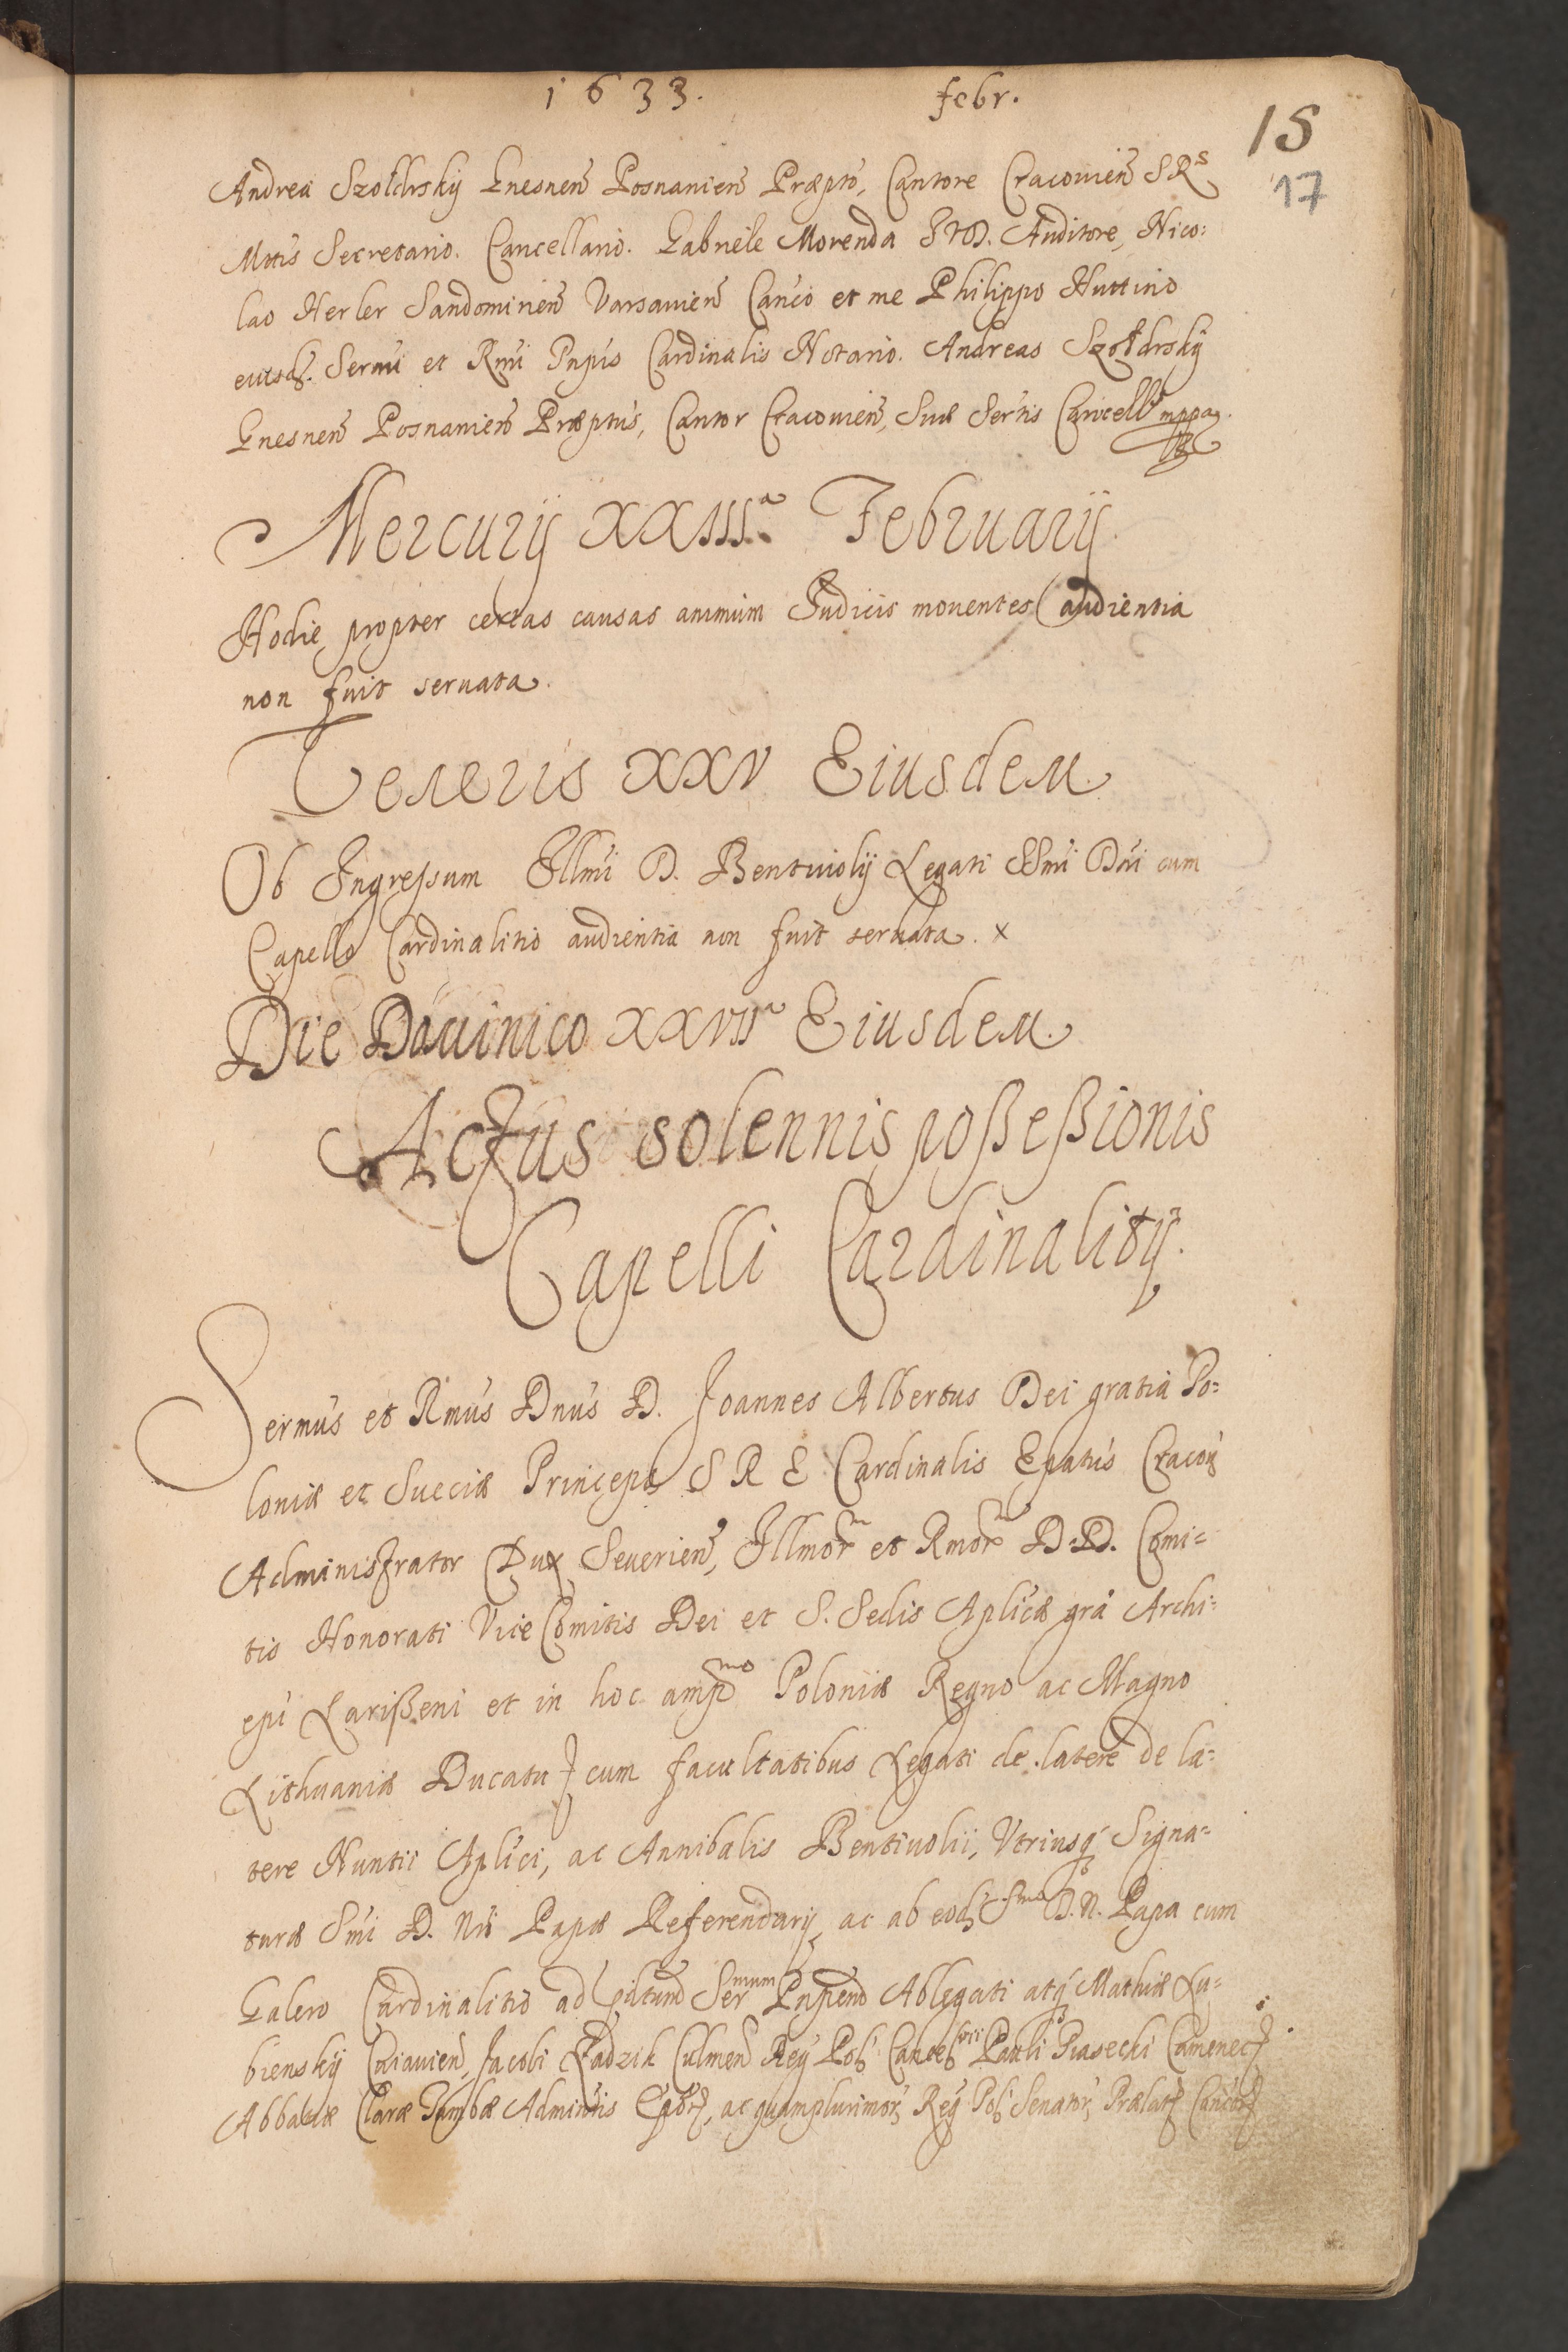 1633. febr.
15
17
Andrea Szołdrsky Gnesnen Posnanien Præpto, Cantore Cracouien S R
Mttis Secretario. Cancellario. Gabriele Morenda I V D. Auditore, Nico:
lao Herler Sandomirien Varsauien Canco et me Philippo Huttino
eiusd. Sermi et Rmi Pnpis Cardinalis Notario. Andreas Szołdrsky
Gnesnen Posnanien Præptus, Cantor Cracouien, Suæ Sertis Cancell mppa.
Mercurij XXIII.a Februarij.
Hodie propter certas causas animum Iudicis mouentes audientia
non fuit seruata.
Veneris XXV Eiusdem.
Ob Ingressum Illmi D. Bentiuolij Legati SSmi Dni cum
Capello Cardinalitio audientia non fuit seruata. x
Die Dominico XXVIIa Eiusdem.
Actus solennis poßeßionis
Capelli Cardinalitij.
Sermus et Rmus Dnus D. Joannes Albertus Dei gratia Po:
loniæ et Sueciæ Princeps S R E Cardinalis Epatus Cracou
Administrator Dux Seuerien, Illmor et Rmor D.D. Comi:
tis Honorati ViceComitis Dei et S. Sedis Aplicæ gra Archi:
epi Larißeni et in hoc ampmo Poloniæ Regno ac Magno
Lithuaniæ Ducatu cum facultatibus Legati de latere de la:
tere Nuntii Aplici, ac Annibalis Bentiuolii, Vtriusq Signa:
turæ Smi D. Nri Papæ Referendarij, ac ab eod Smo D. N. Papa cum
Galero Cardinalitio ad Sermum Pnpem Ablegati atq Mathiæ Lu:
biensky Cuiauien, Jacobi Zadzik Culmen Reg Pol Cancell Pauli Piasecki Camenec
Abbatiæ Claræ Tumbæ Admintis Epor, ac quamplurimor Reg Pol Senator Prælat Cancor